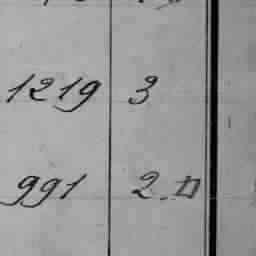 1219 3
991 2.